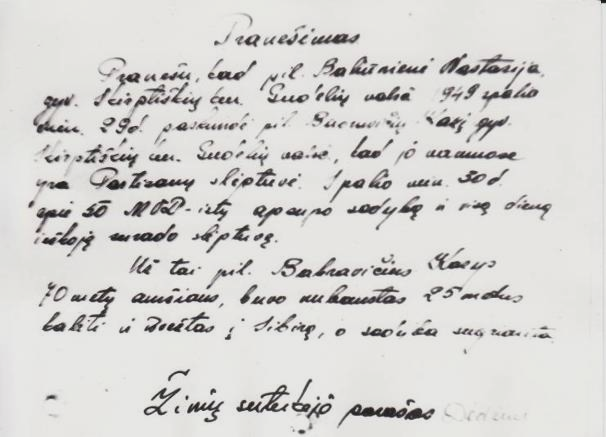 Pranešimas
Pranešu, kad pil. Bakūnienė Nastazija,
gyv. Skirptiškių km. valsč 1949 spalio
mėn. 29d. paskundė pil. Kazį gyv.
Skirptiškių km. valsč, kad jo namuose
yra Partizanų slėptuvė. Spalio mėn. 30 d.
apie 50 MVD-istų apsupo sodybą ir visą dieną
ieškoję surado slėptuvę.
Už tai pil. Babravičius Kazys
70 metų amžiaus, buvo nubaustas 25 metus
kalėti ir į Sibirą, o sodyba sugriauta.
Žinių suteikėjo parašas